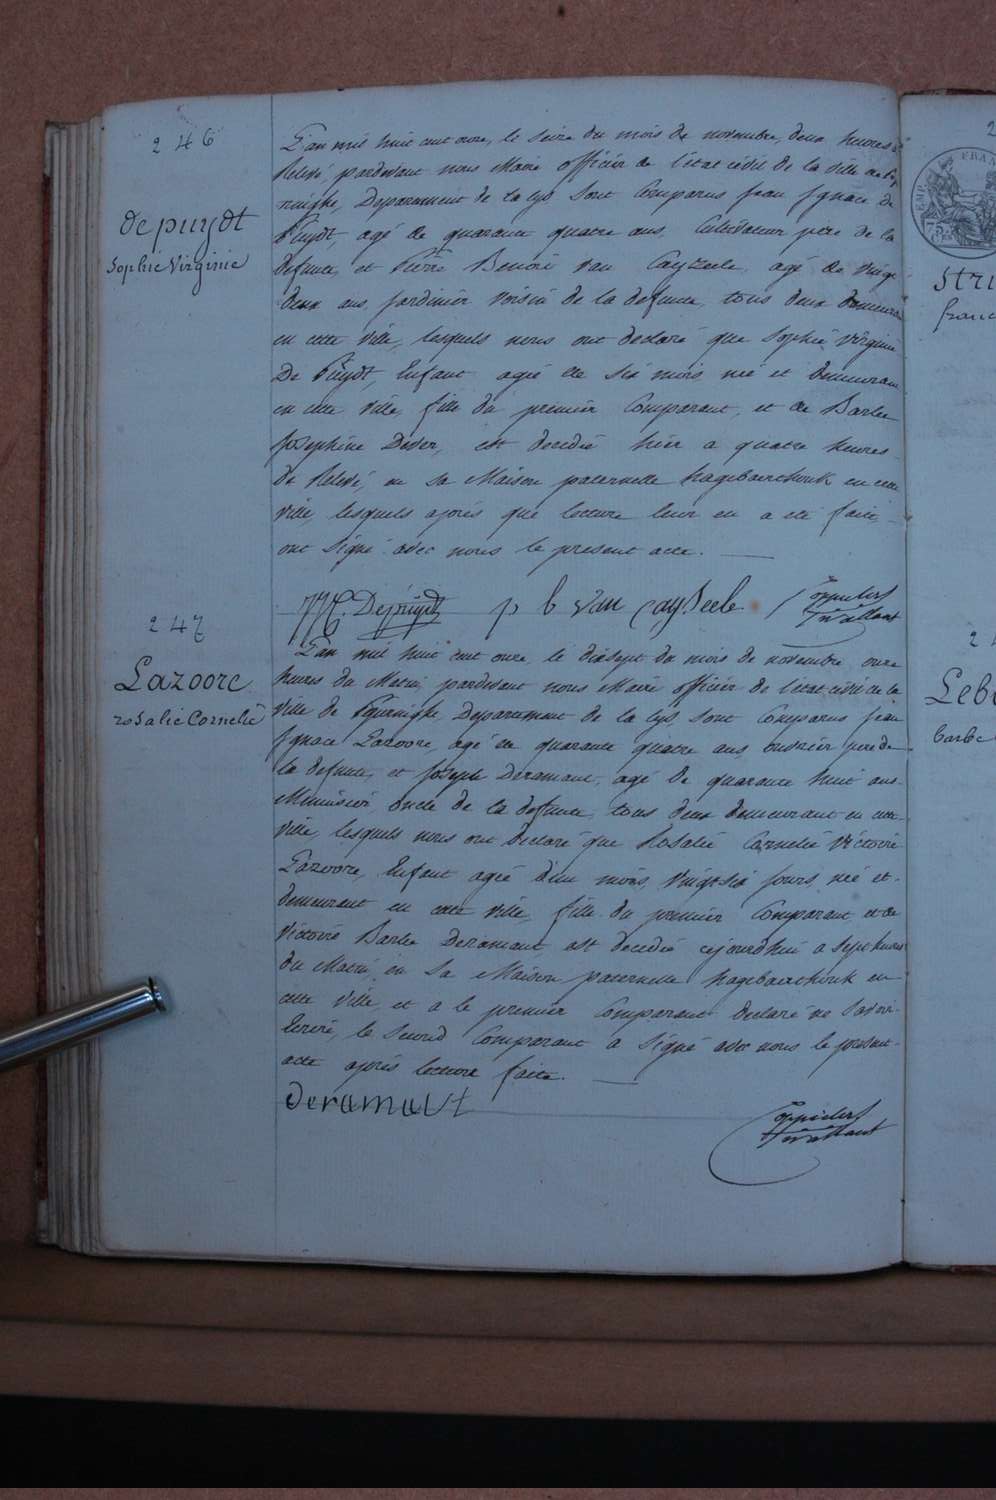 246
depuydt
Sophie Virginie
L'an mil huit cent onze, le seize du mois de novembre, deux heures de
Relevé, pardevant nous Maire officier de l'état civil de la ville de Pop
ringhe, Departement de la Lys sont Comparus Jean Ignace de
Puydt, agé de quarante quatre ans, Cultivateur père de la
defunte, et Pierre Benoit van Cayzeele, agé de vingt
deux ans, Jardinier voisin de la defunte, tous deux demeurant
en cette ville, lesquels nous ont declaré que Sophie Virginie
De Puydt, Enfant agée de six mois née et demeurant
en cette ville, fille du premier Comparant, et de Barbe
Josephine Dever, est decedée hier a quatre heures
de Relevé, en sa Maison paternelle hagebaerthouk en cette
ville, lesquels après que lecture leur en a eté faite,
ont signé avec nous le present acte.
Depuydt p b van caySeele
247
Lazoore
rosalie Cornelie
L'an mil huit cent onze, le dixsept du mois de novembre onze
heures du Matin, pardevant nous Maire officier de l'état civil de la
ville de Poperinghe Departement de la Lys, sont Comparus Jean
Ignace Lazoore, agé de quarante quatre ans, ouvrier pere de
la defunte, et Joseph Deramaut, agé de quarante huit ans
Menuisier, oncle de la defunte, tous deux demeurant en cette
ville, lesquels nous ont declaré que Rosalie Cornelie Victoire
Lazoore, Enfant agée d'un mois, vingt six jours, née et
demeurant en cette ville, fille du premier Comparant et de
Victoire Barbe Deramaut, est decedée cejourdhui a sept heures
du Matin, en sa Maison paternelle hagebaerthouk en
cette ville, et a le premier Comparant declaré ne savoir
Ecrire, le second Comparant a signé avec nous le present
acte après lecture faite.
deramaut